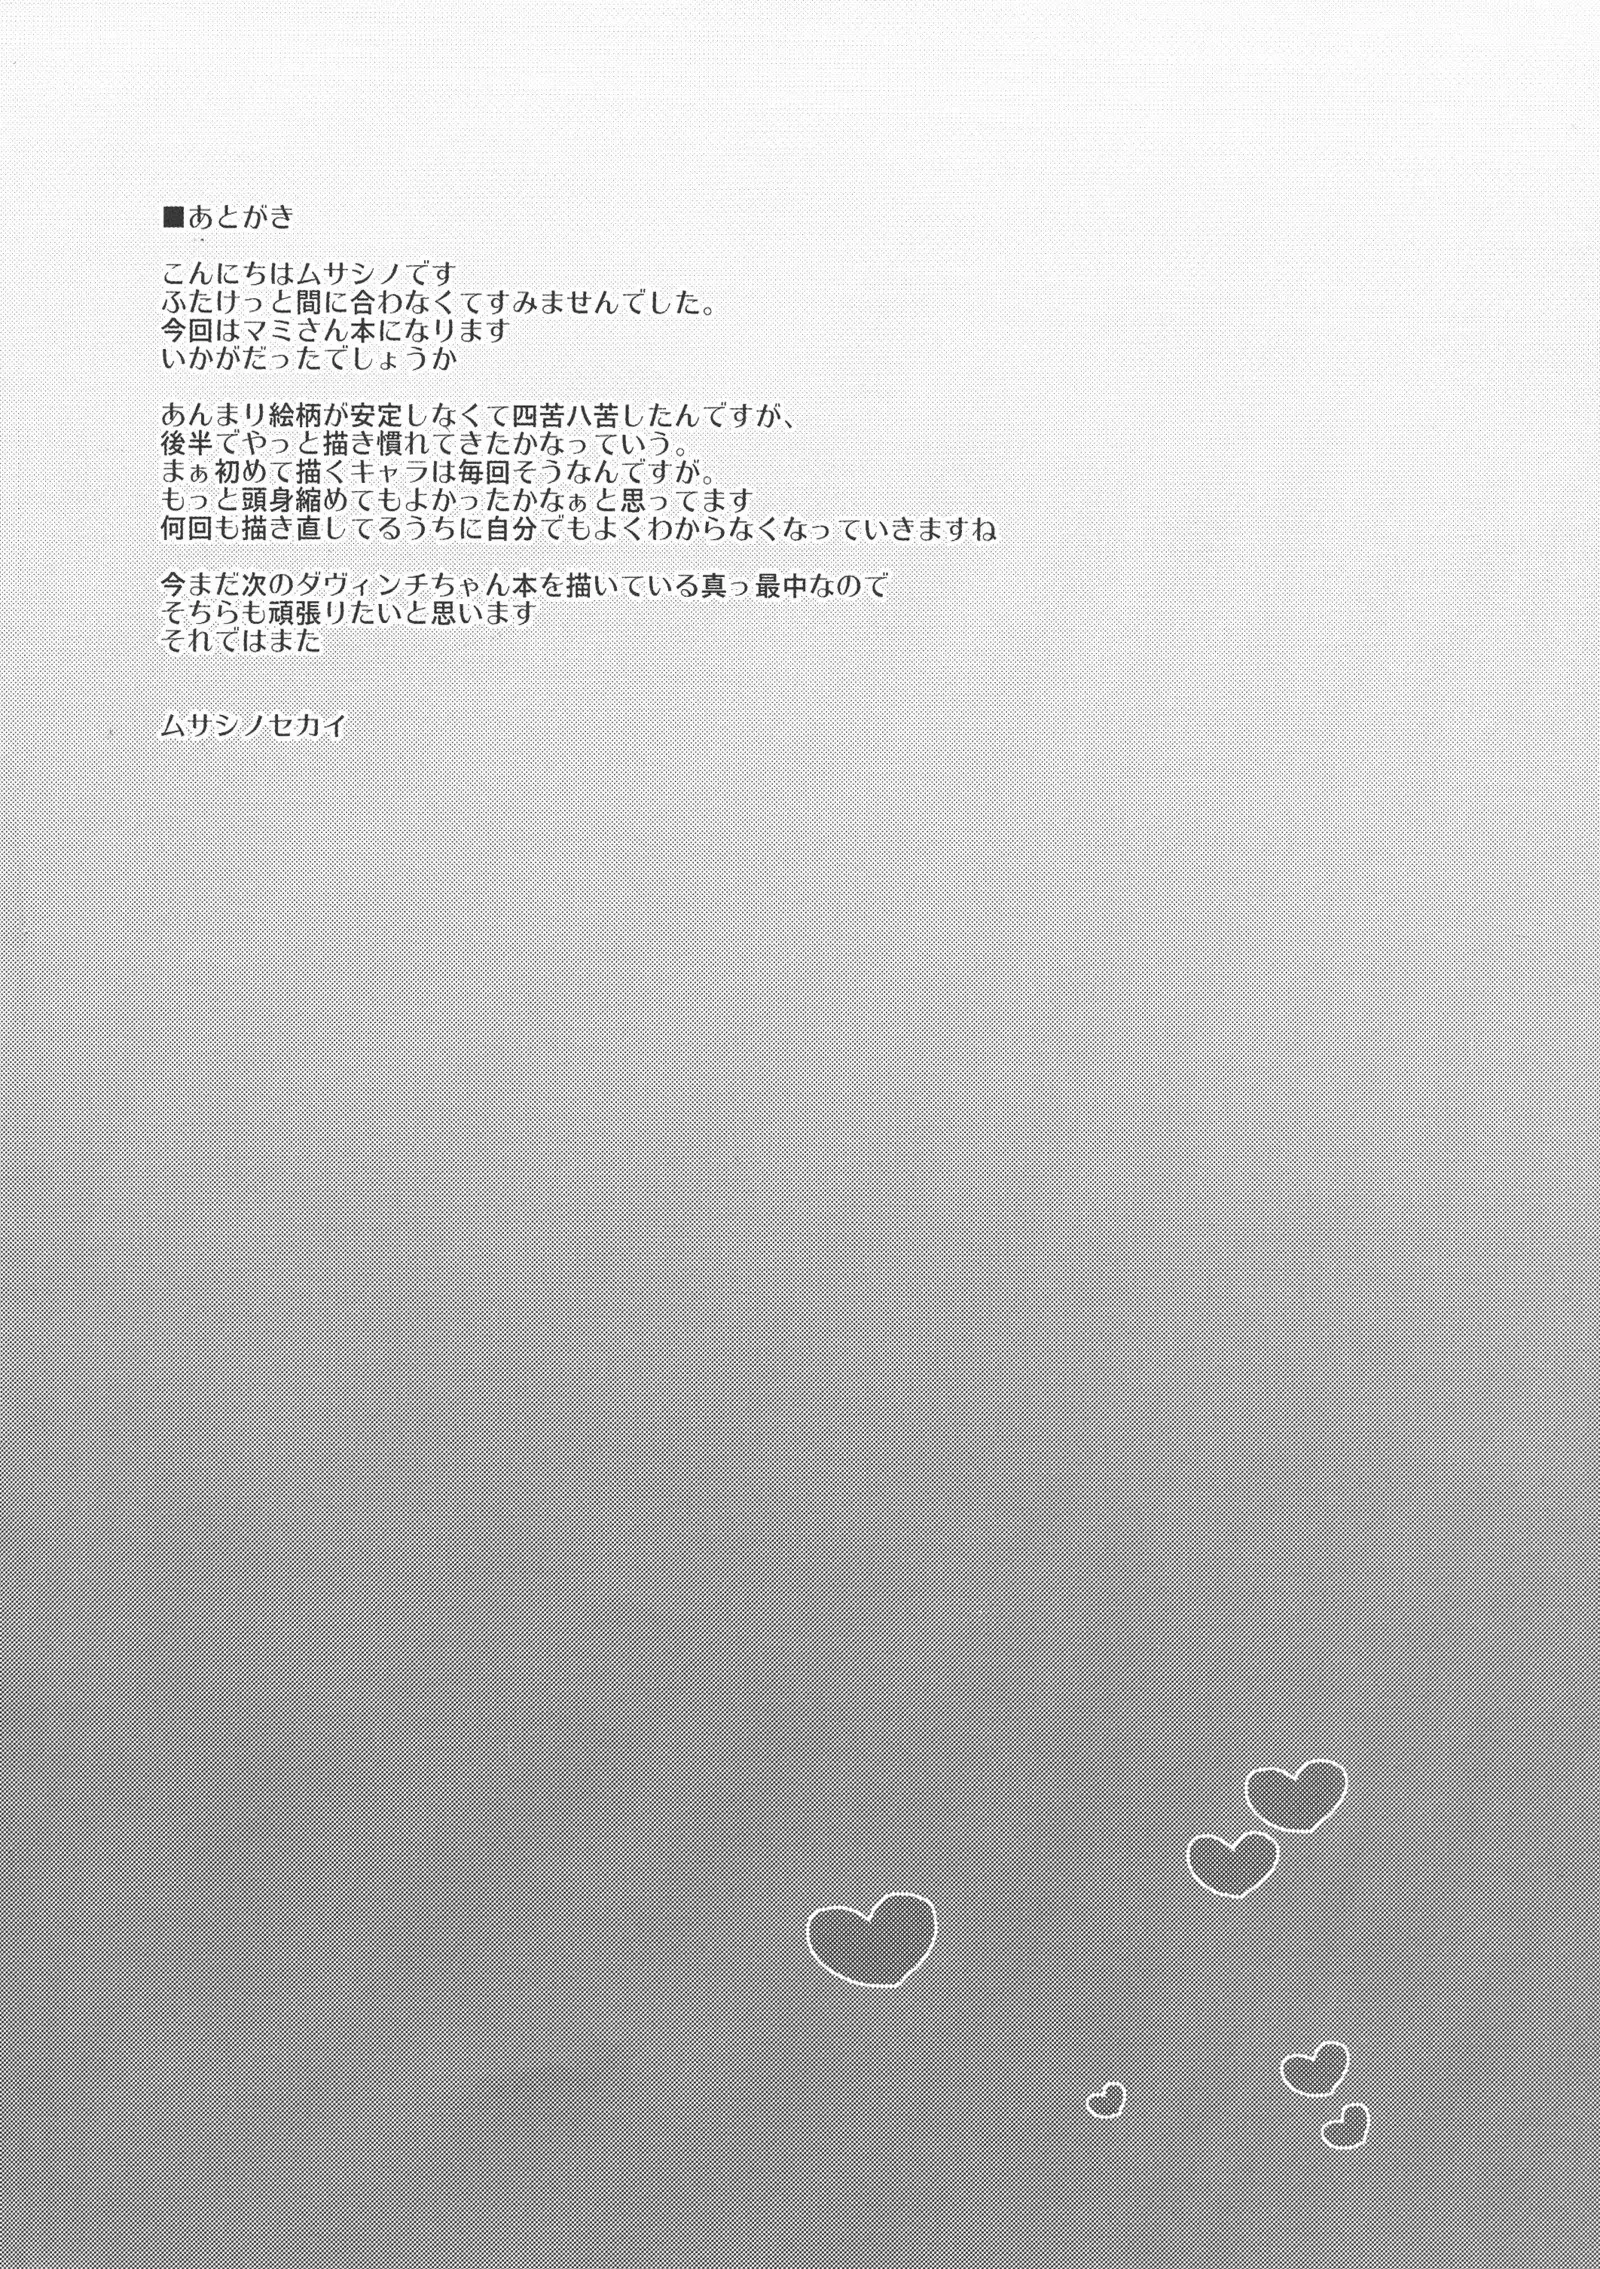 ■あとがき
こんにちはムサシノです
ふたけっと間に合わなくてすみませんでした。
今回はマミさん本になります
いかがだったでしょうか
あんまり絵柄が安定しなくて四苦八苦したんですが、
後半でやっと描き慣れてきたかなっていう。
まぁ初めて描くキャラは毎回そうなんですが。
もっと頭身縮めてもよかったかなぁと思ってます
何回も描き直してるうちに自分でもよくわからなくなっていきますね
今まだ次のダヴィンチちゃん本を描いている真っ最中なので
そちらも頑張りたいと思います
それではまた
ムサシノセカイ